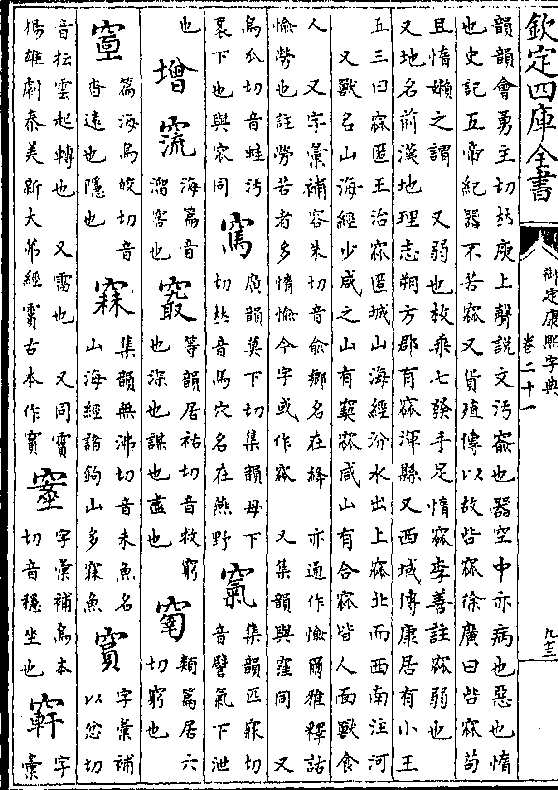 欽定四庫全書
御定康熙字典
卷二十一
九十三
韻韻會勇主切𠀤庾上聲說文汚窬也器空中亦病也惡也惰
也史記五帝紀器不若窳又貨殖傳以故呰窳徐廣曰呰窳茍
且惰嬾之謂 又弱也枚乘七發手足惰窳李善註窳弱也
又地名前漢地理志朔方郡有窳渾縣又西域傳康居有小王
五三曰窳匿王治窳匿城山海經汾水出上窳北而西南注河
又獸名山海經少咸之山有窫窳咸山有合窳皆人面獸食
人 又字彙補容朱切音兪鄉名在絳 亦通作愉爾雅釋詁
愉勞也註勞苦者多惰愉今字或作窳 又集韻與窪同 又
烏瓜切音蛙汚
衺下也與窊同
廣韻莫下切集韻母下
切𠀤音馬穴名在燕野
集韻匹寐切
音譬氣下泄
也
增
海篇音
溜窖也
等韻居祐切音救窮
也深也謀也盡也
類篇居六
切窮也
篇海烏皎切音
杳遠也隱也
集韻無沸切音未魚名
山海經諸鉤山多寐魚
字彙補
以忿切
音抎雲起轉也 又雷也 又同竇
揚雄劇秦美新大茀經竇古本作
字彙補烏本
切音穩坐也
字
彙